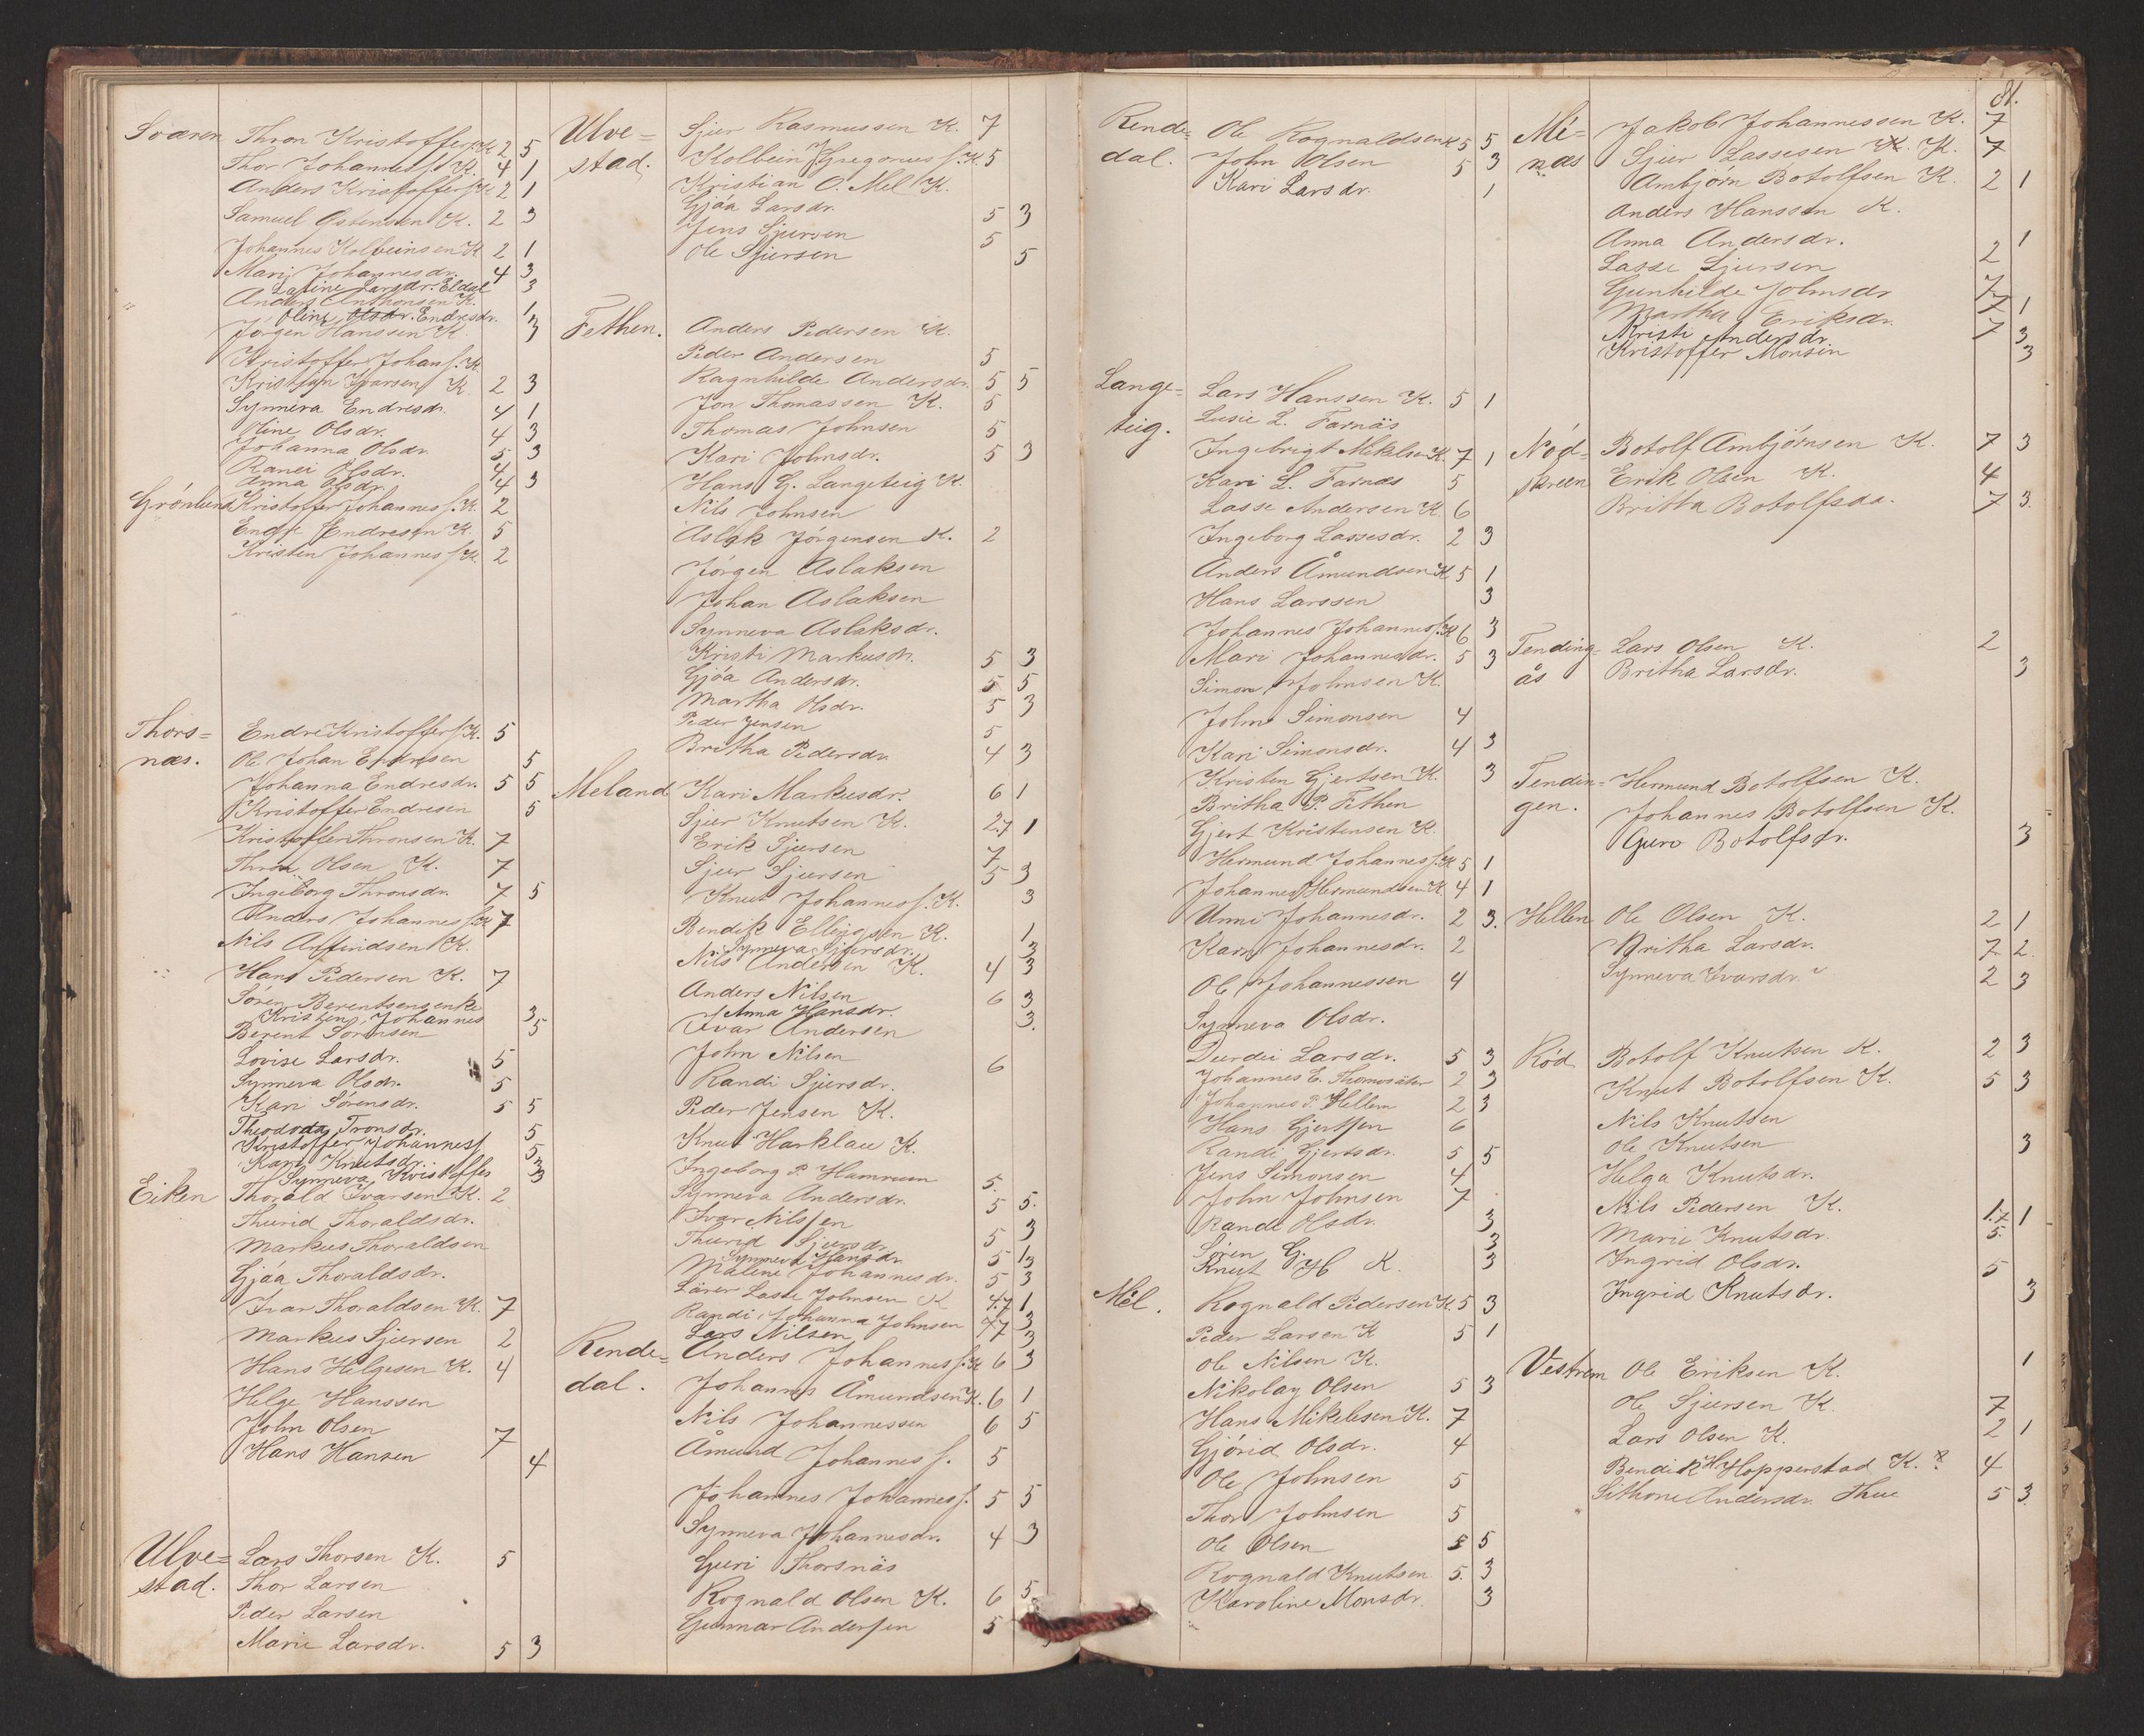 Sværen Thron Kristoffers. K. 2 5
Thor Johannes s. K. 4 1
Anders Kristoffers. K. 2 1
Samuel Østensen K. 2 3
Johannes Kolbeinsen K 2 1
Mari Johannesdr. 4 3
Larsdr. Eldal 3
Anders Anthonsen K. 1
Oline Olsdr. Endresdr.
Jörgen Hanssen K 3
Kristoffer Johans. K.
Kristian Ivarsen K. 2 3
Synneva Endresdr. 4 1
Oline Olsdr. 4 3
Johanna Olsdr. 5 3
Ranei Olsdr. 4
Anna Olsdr. 4 3
Grönlund Kristoffer Johannes s. K. 2
Endre Endresen K. 5
Kristen Johannes s. K. 2
Thors=
næs.
Endre Kristoffers. K. 5
Ole Johan Endresen 5
Johanna Endresdr. 5 5
Kristoffer Endresen 5
Kristoffer Thronsen K. 7
Thron Olsen K. 7
Ingeborg Thronsdr. 7 5
Anders Johannes s. K 7
Nils Anfindsen K.
Hans Pedersen K. 7
Sören Berentsen
Kristen Johannes 3
Berent Sörensen 5
Lovise Larsdr. 5
Synneva Olsdr. 5
Kari Sörensdr. 5 5
Tronsdr. 5
Kristoffer Johanness 5
Kari Knutsdr. 3
Synneva Kristoffes 3
Eiken Thorald Ivarsen K. 2
Thurid Thoraldsdr.
Markus Thoraldsen
Gjöa Thoraldsdr.
Ivar Thoraldsen K. 7
Markus Sjursen 2
Hans Helgesen K. 4
Helge Hanssen
John Olsen 7
Hans Hansen 4
Ulve=
stad.
Lars Thorsen K. 5
Thor Larsen
Peder Larsen
Marie Larsdr. 5 3
Ulve=
stad.
Sjur Rasmussen K. 7
Kolbein Gregorius s. K 5
Kristian O. Mel K.
Gjöa Larsdr. 5 3
Jens Sjursen 5
Ole Sjursen 5
Fethen. Anders Pedersen K.
Peder Andersen 5
Ragnhilde Andersdr. 5 5
Jon Thomassen K. 5
Thomas Johnsen 5
Kari Johnsdr. 5 3
Hans G. Langeteig K.
Nils Johnsen
Aslak Jörgensen K. 2
Jörgen Aslaksen
Johan Aslaksen
Synneva Aslaksdr.
Kristi Markusdr. 5 3
Gjöa Andersdr. 5 5
Martha Olsdr. 5 3
Peder Jensen 5
Britha Pedersdr 4 3
Meland Kari Markusdr. 6 1
Sjur Knutsen K. 2.7 1
Erik Sjursen 7
Sjur Sjursen 5 3
Knut Johanness. K. 3
Bendik Ellingsen K. 1
Synneva Sjursdr. 3
Nils Andersen K. 4 3
Anders Nilsen 6 3
Anna Hansdr. 3.
Ivar Andersen
John Nilsen 6
Randi Sjursdr.
Peder Jensen K.
Knut Harklau K.
Ingeborg P. Hammum 5.
Synneva Andersdr. 5 5.
Ivar Nilssen
Thurid Sjursdr 5 3
Synneva Hansdr
Malene Johannesdr. 5 3
Lärer Lasse Johnsen K 4.7 1
Randi Johanna Johnsen 4.7 3
Lars Nilsen 3
Rende=
dal.
Anders Johannes s. K 6 3
Johannes Åmundsen K. 6 1
Nils Johannessen 6 5
Åmund Johannes s. 5
Johannes Johanness. 5 5
Synneva Johannesdr. 4 3
Guri Thorsnäs
Rognald Olsen K. 6 5
Gunnar Anderssen 5
81.
Rende=
dal.
Ole Rognaldsen K 5 5
John Olsen 5 3
Kari Larsdr. 1
Lange=
teig.
Lars Hanssen K. 5 1
Lusie L. Farnäs
Ingebrigt Mikelsen K. 7 1
Kari L. Farnæs 5
Lasse Andersen K. 6
Ingeborg Lassesdr. 2 3
Anders Åmundsen K 5 1
Hans Larssen 3
Johannes Johanness. K 6 3
Mari Johannesdr. 5 3
Simon Johnsen K.
John Simonsen 4
Kari Simonsdr. 4 3
Kristen Gjertsen K. 3
Britha P. Fethen
Gjert Kristensen K.
Hermund Johanness. K 5 1
Johannes Hermundsen K 4 1
Unni Johannesdr. 2 3.
Kari Johannesdr. 2
Ole Johannessen 4
Synneva Olsdr.
Durdei Larsdr. 5 3
Johannes E. 2 3
Johannes P. Hellem 2 3
Hans Gjertsen 6
Randi Gjertsdr. 5 5
Jens Simonsen 4
John Johnsen 7
Rande Olsdr. 3
Sören G. 3
Knut H K. 3
Mèl. Rognald Pedersen K. 5 3
Peder Larsen K 5 1
Ole Nilsen K.
Nikolay Olsen 5 3
Hans Mikelesen K. 7
Gjörid Olsdr. 4
Ole Johnsen 5
Thor Johnsen 5
Ole Olsen 5 5
Rognald Knutsen 5. 3
Karoline Monsdr. 3
Mé=
næs
Jakob Johannessen K. 7
Sjur Lassesen K. K. 7
Ambjörn Botolfsen K. 2 1
Anders Hanssen K.
Anna Andersdr. 1
Lasse Sjursen 2
Gunhilde Johnsdr 7
Martha Eriksdr. 7 1
Kristi Andersdr. 7 3
Kristoffer Monsen 3
Nöd=
skreen
Botolf Ambjörnsen K. 7 3
Erik Olsen K. 4
Britha Botolfsdr. 7 3.
Tending=
ås
Lars Olsen K. 2
Britha Larsdr. 3
Tendin=
gen.
Hermund Botolfsen K.
Johannes Botolfsen K.
Guro Botolfsdr. 3
Hellen Ole Olsen K. 2 1
Britha Larsdr. 7 2.
Synneva Ivarsdr. 2 3
Röd Botolf Knutsen K. 2 3
Knut Botolfsen K. 5 3
Nils Knutsen
Ole Knutsen 3
Helga Knutsdr.
Nils Pedersen K. 1.7. 1
Marie Knutsdr. 5.
Ingrid Olsdr. 5
Ingrid Knutsdr. 3
Vestrem Ole Eriksen K. 1
Ole Sjursen K. 7
Lars Olsen K. 2 1
Bendik H Hopperstad K. 4
Sithone Andersdr. Thue 5 3.